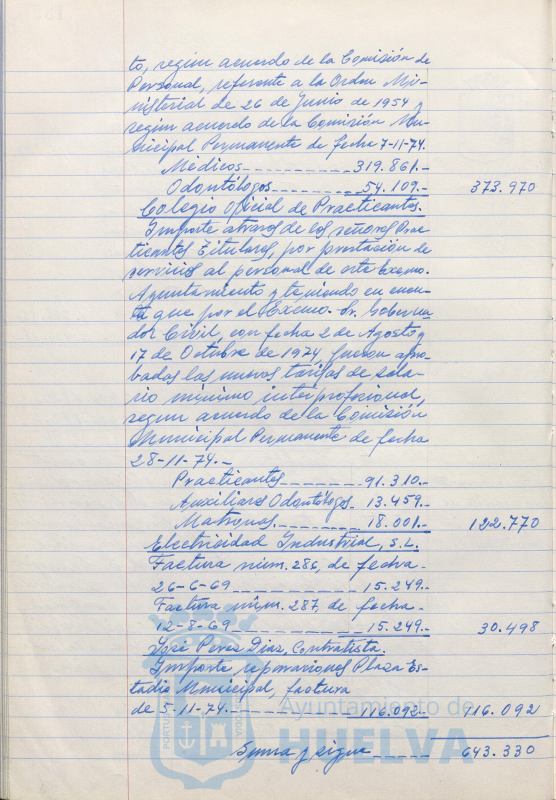 to, según acuerdo de la Comisión de
Personal, referente a la Orden Mi-
nisterial de 26 de Junio de 1954 y
según acuerdo de la Comisión Mu-
nicipal Permanente de fecha 7-11-74.
Médicos---------- 319.861.-
Odontólogos-------- 54.109.- 373.970
Colegio Oficial de Practicantes.
Importe atrasos de los señores Prac
ticantes Titulares, por prestación de
servicios al personal de este Excmo.
Ayuntamiento y teniendo en cuen-
ta que por el Excmo. Sr. Goberna
dor Civil, con fecha 2 de Agosto y
17 de Octubre de 1974, fueron apro
badas las nuevas tarifas de sala-
rio mínimo interprofesional,
según acuerdo de la Comisión
Municipal Permanente de fecha
28-11-74.-
Practicantes-------- 91.310.-
Auxiliares Odontólogos- 13.459.-
Matronas--------- 18.001.- 122.770
Electricidad Industrial, S.L.
Factura núm. 286, de fecha-
26-6-69------------ 15.249.-
Factura núm. 287, de fecha-
12-8-69------------ 15.249.- 30.498
José Pérez Díaz, Contratista.
Importe reparaciones Plaza Es-
tadio Municipal, factura
de 5-11-74.---------- 116.092.- 116.092
Suma y sigue----- 643.330
Ayuntamiento de
HUELVA